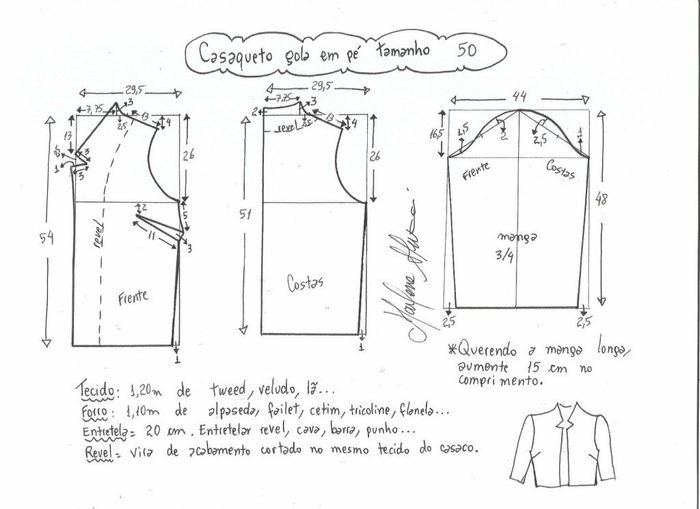 Casaqueto gola em pé tamanho 50
29,5
7,75
3
2,5
13
4
13
3
1
5
26
54
revel
2
5
11
3
Frente
1
29,5
7,75
3
2
2,5
13
4
revel
26
51
Costas
1
44
16,5
1,5
2
2,5
1
Frente
Costas
48
manga
3/4
2,5
2,5
*Querendo a manga longa,
aumente 15 cm no
comprimento.
Tecido: 1,20m de tweed, veludo, lã...
Forro: 1,10m de alpaseda, failet, cetim, tricoline, flanela...
Entretela= 20 cm. Entretelar revel, cava, barra, punho...
Revel= vira de acabamento cortado no mesmo tecido do casaco.